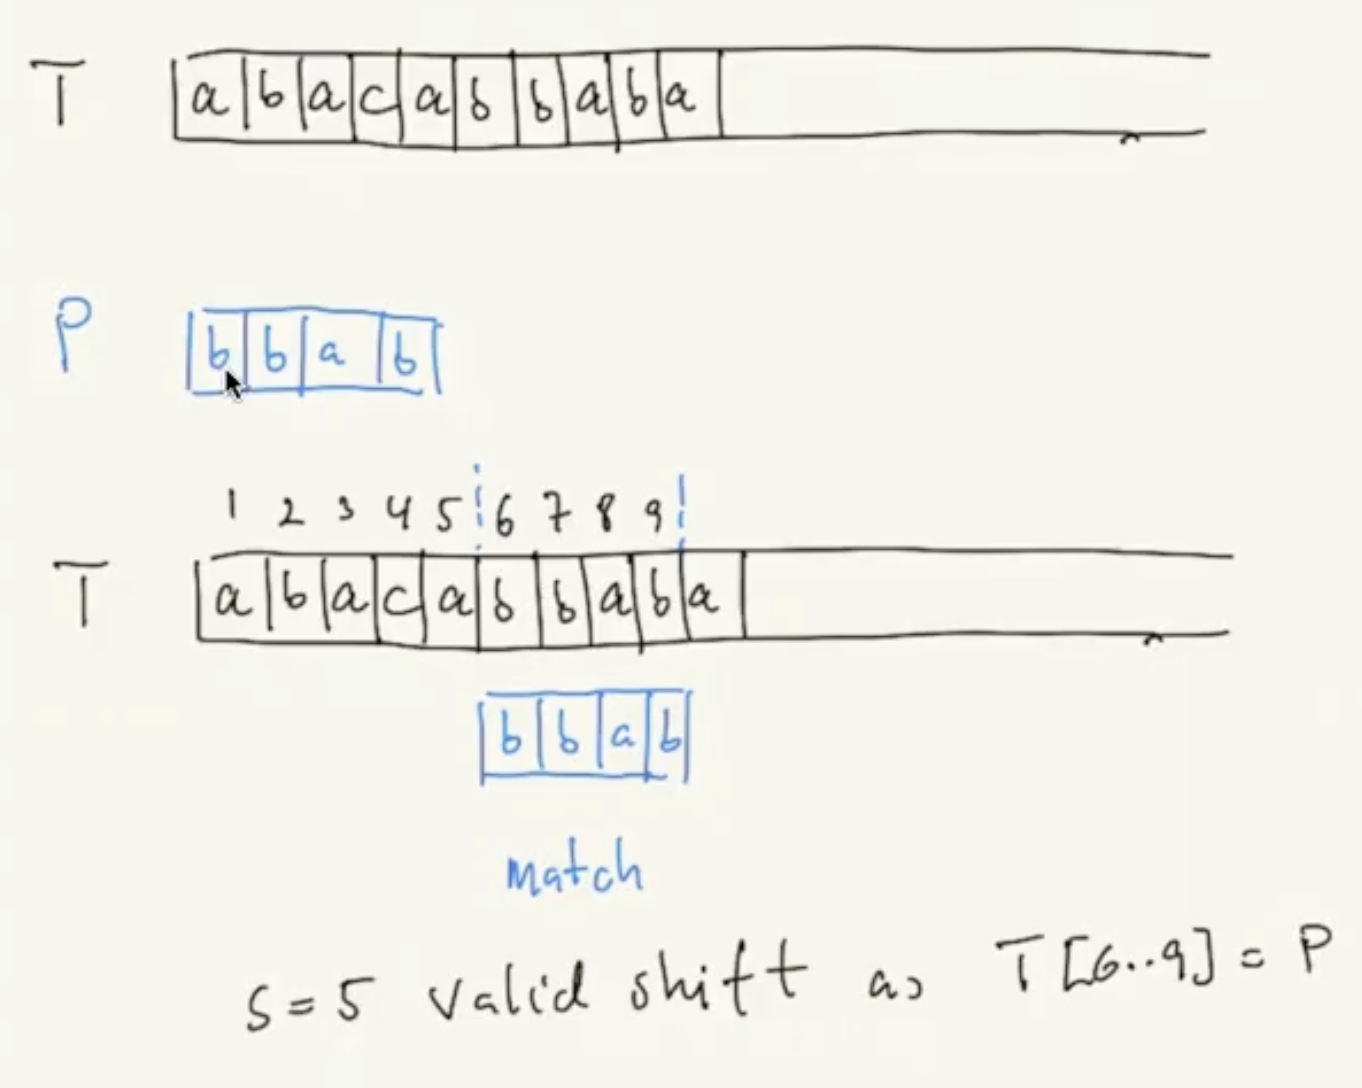 T a b a c a b b a b a
P b b a b
1 2 3 4 5 6 7 8 9
T a b a c a b b a b a
b b a b
match
s=5 valid shift as T[6..9] = P